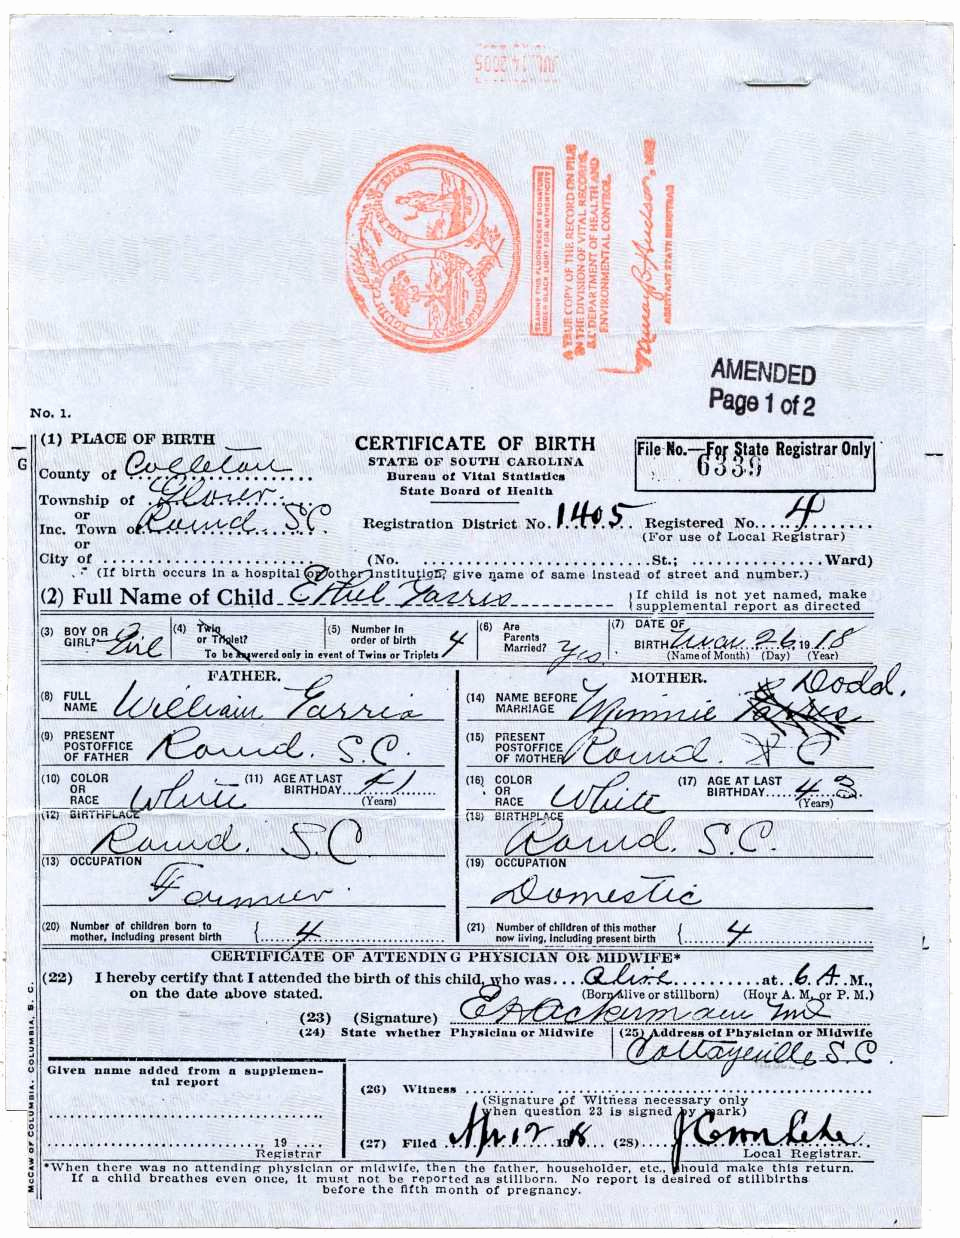 JUL 14 2005
EXAMINE THIS FLUORESCENT SIGNATURE
UNDER BLACK LIGHT FOR AUTHENTICITY
A TRUE COPY OF THE RECORD ON FILE
IN THE DIVISION OF VITAL RECORDS,
S.C. DEPARTMENT OF HEALTH AND
ENVIRONMENTAL CONTROL.
ASSISTANT STATE REGISTRAR
AMENDED
Page 1 of 2
No. 1.
(1) PLACE OF BIRTH
County of Colleton
Township of Glover
or
Inc. Town of Round S C
or
City of
CERTIFICATE OF BIRTH
STATE OF SOUTH CAROLINA
Bureau of Vital Statistics
State Board of Health
File No.—For State Registrar Only
6339
Registration District No. 1405 Registered No. 4
(For use of Local Registrar)
(No. St.; Ward)
(If birth occurs in a hospital or other institution, give name of same instead of street and number.)
(2) Full Name of Child Ethel Farris
If child is not yet named, make
supplemental report as directed
(3) BOY OR GIRL? Girl
(4) Twin or Triplet?
(5) Number in order of birth 4
To be answered only in event of Twins or Triplets
(6) Are Parents Married? Yes
(7) DATE OF BIRTH Mar 26 1918
(Name of Month) (Day) (Year)
FATHER.
(8) FULL NAME William Farris
(9) PRESENT POSTOFFICE OF FATHER Round. S.C.
(10) COLOR OR RACE White
(11) AGE AT LAST BIRTHDAY 41
(Years)
(12) BIRTHPLACE
Round. S.C
(13) OCCUPATION
Farmer
(20) Number of children born to
mother, including present birth 4
MOTHER.
(14) NAME BEFORE MARRIAGE Minnie Farris Dodd.
(15) PRESENT POSTOFFICE OF MOTHER Round S C
(16) COLOR OR RACE White
(17) AGE AT LAST BIRTHDAY 43
(Years)
(18) BIRTHPLACE
Round. S.C.
(19) OCCUPATION
Domestic
(21) Number of children of this mother
now living, including present birth 4
CERTIFICATE OF ATTENDING PHYSICIAN OR MIDWIFE*
(22) I hereby certify that I attended the birth of this child, who was alive at 6 A. M.,
on the date above stated. (Born Alive or stillborn) (Hour A. M. or P. M.)
(23) (Signature) Ackerman MD
(24) State whether Physician or Midwife (25) Address of Physician or Midwife
Cottageville S.C
Given name added from a supplemen-
tal report
, 19
Registrar
(26) Witness
(Signature of Witness necessary only
when question 23 is signed by mark)
(27) Filed Apr 12 1918 (28)
Local Registrar.
*When there was no attending physician or midwife, then the father, householder, etc., should make this return.
If a child breathes even once, it must not be reported as stillborn. No report is desired of stillbirths
before the fifth month of pregnancy.
McCAW OF COLUMBIA, COLUMBIA, S. C.